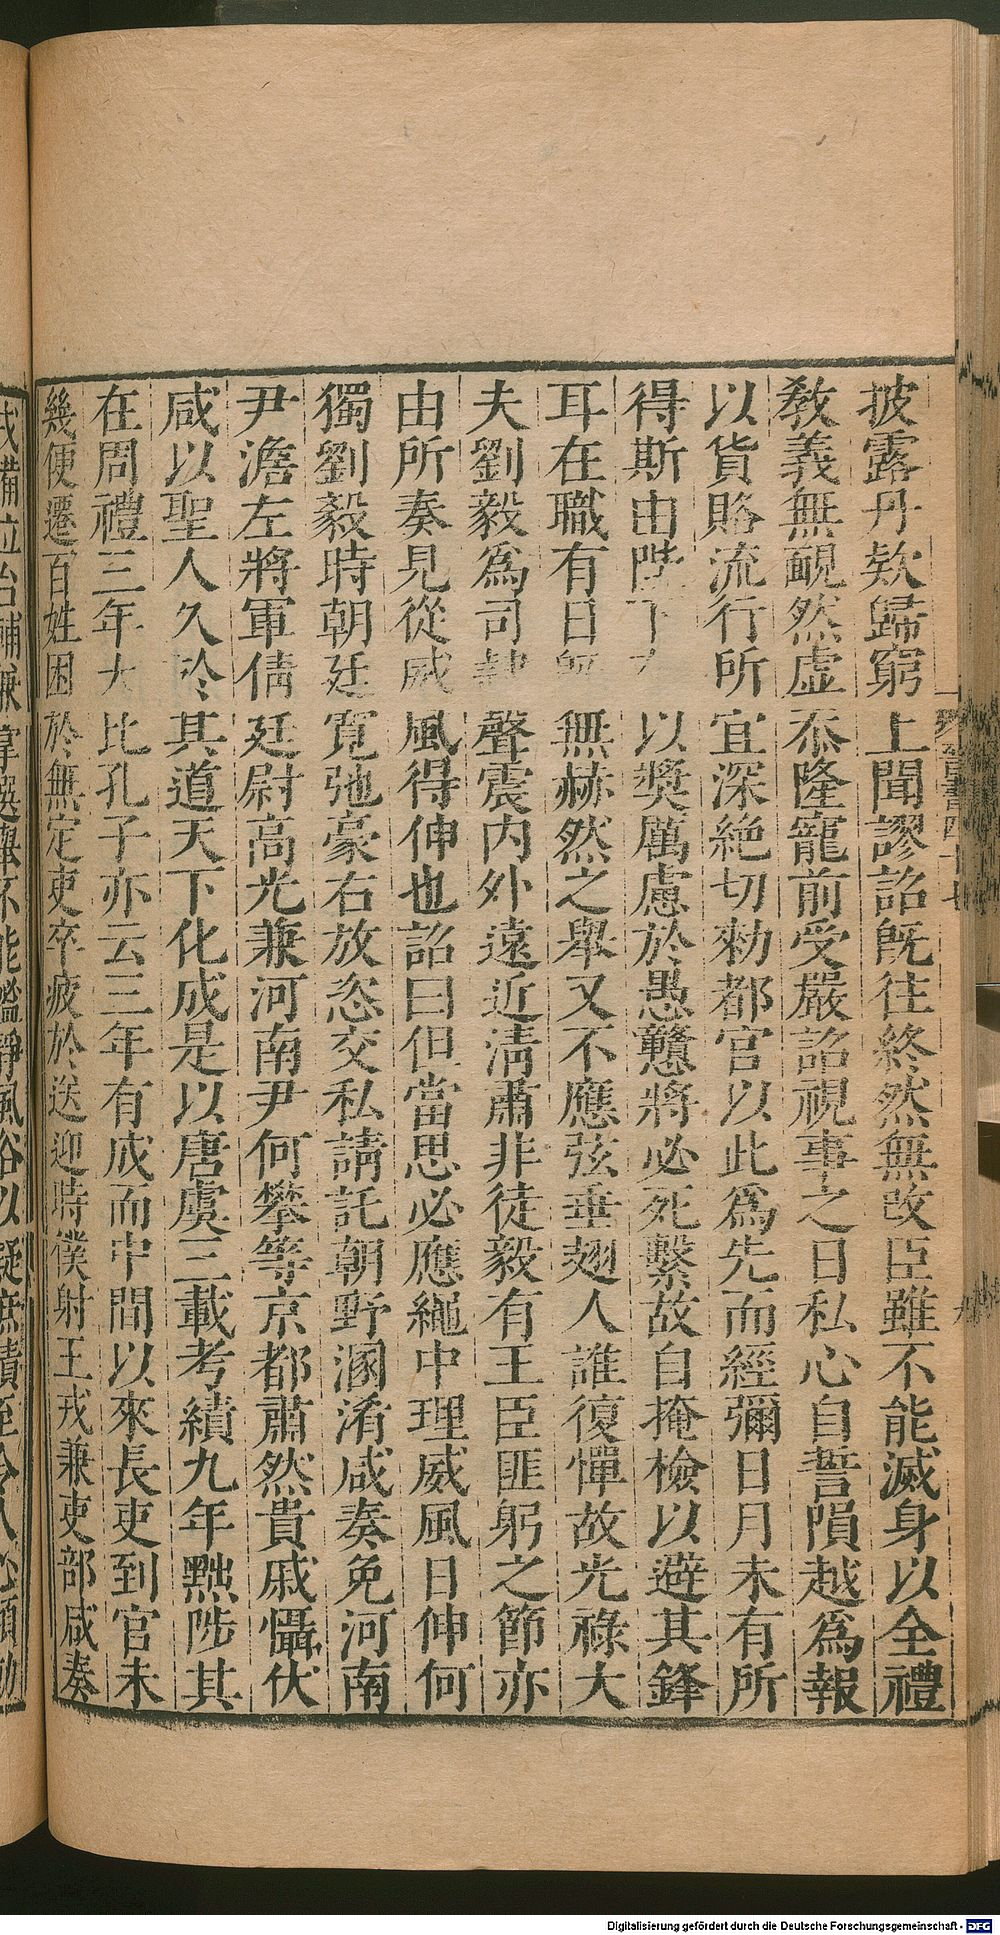 晉書四十七
九
披露丹欵歸窮上聞謬詔既往終然無改臣雖不能滅身以全禮
敎義無靦然虛忝隆寵前受嚴詔視事之日私心自誓隕越爲報
以貨賂流行所宜深絕切勑都官以此爲先而經彌日月未有所
得斯由陛下有以奬厲慮於愚戇將必死繫故自掩檢以避其鋒
耳在職有日既無赫然之舉又不應弦垂翅人誰復憚故光祿大
夫劉毅爲司隸聲震內外遠近清肅非徒毅有王臣匪躬之節亦
由所奏見從威風得伸也詔曰但當思必應繩中理威風日伸何
獨劉毅時朝廷寬弛豪右放恣交私請託朝野溷淆咸奏免河南
尹澹左將軍倩廷尉高光兼河南尹何攀等京都肅然貴戚懾伏
咸以聖人久於其道天下化成是以唐虞三載考績九年黜陟其
在周禮三年大比孔子亦云三年有成而中間以來長吏到官未
幾便遷百姓困於無定吏卒疲於送迎時僕射王戎兼吏部咸奏
戎備位台輔兼掌選舉不能謐靜風俗以凝庶績至令人心傾動
Digitalisierung gefördert durch die Deutsche Forschungsgemeinschaft - DFG